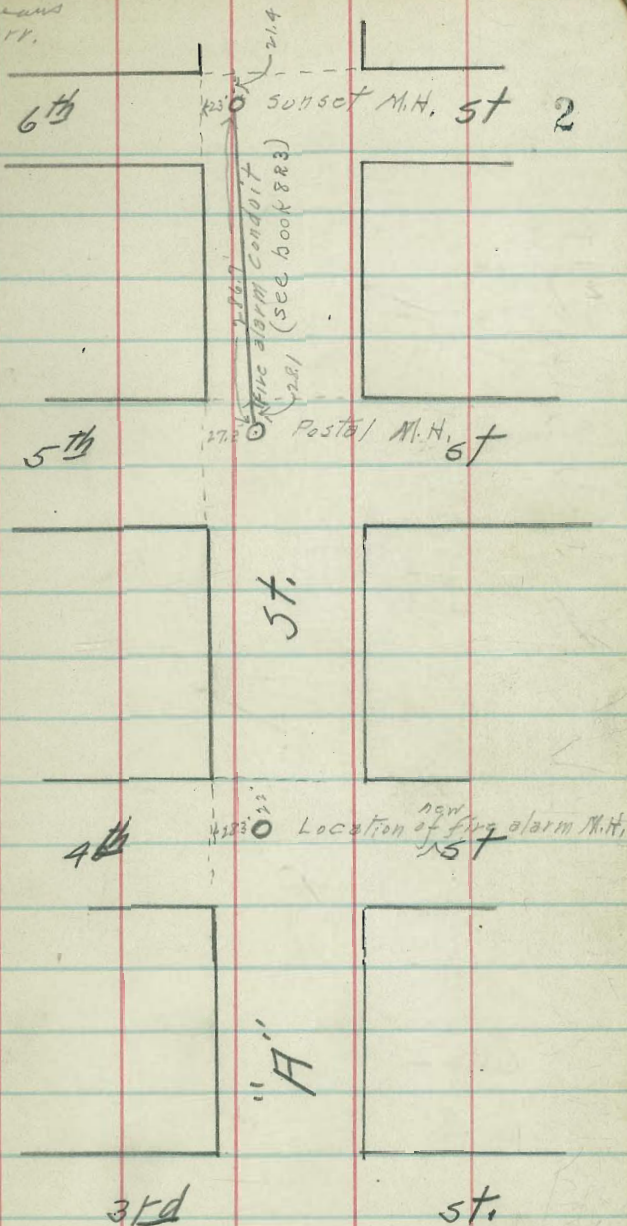 21.4
6th 23' Sunset M.H. St 2
286.7
Fire alarm conduit
(see book 883)
28.1
5th 27.2 Postal M.H. St
St.
23'
new
4th 28.3' Location of fire alarm M.H. St
"A"
3rd St.